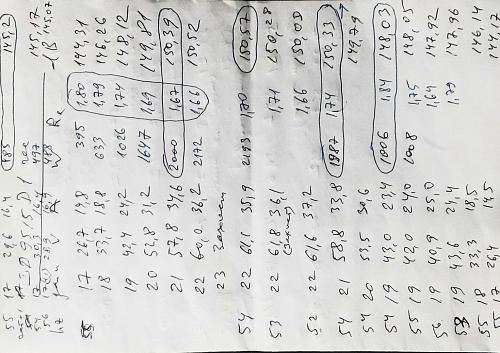 55 17 29,6 16,4 385 145,2
17 26,7 19,8 395 1,80 144,31
18 33,7 18,8 633 1,79 146,26
19 42,4 24,2 1026 1,74 148,12
20 52,8 31,2 1647 1,69 149,81
21 57,8 34,6 2000 1,67 150,39
22 60,0 36,2 2172 1,66 150,52
23
54 22 61,1 35,9 2193 1,70 150,57
53 22 61,8 36,1 1,71 150,28
52 22 61,6 37,2 1,66 150,00
54 21 58,8 33,8 1987 1,74 150,33
54 20 53,5 30,6 149,79
54 19 43,0 23,4 1006 1,84 148,03
55 19 42,0 24,0 1008 1,75 148,05
56 19 40,9 25,0 1,64 147,92
53 19 43,6 24,4 1,79 147,96
55 18 33,3 18,5 146,14
55 17 26,4 14,5